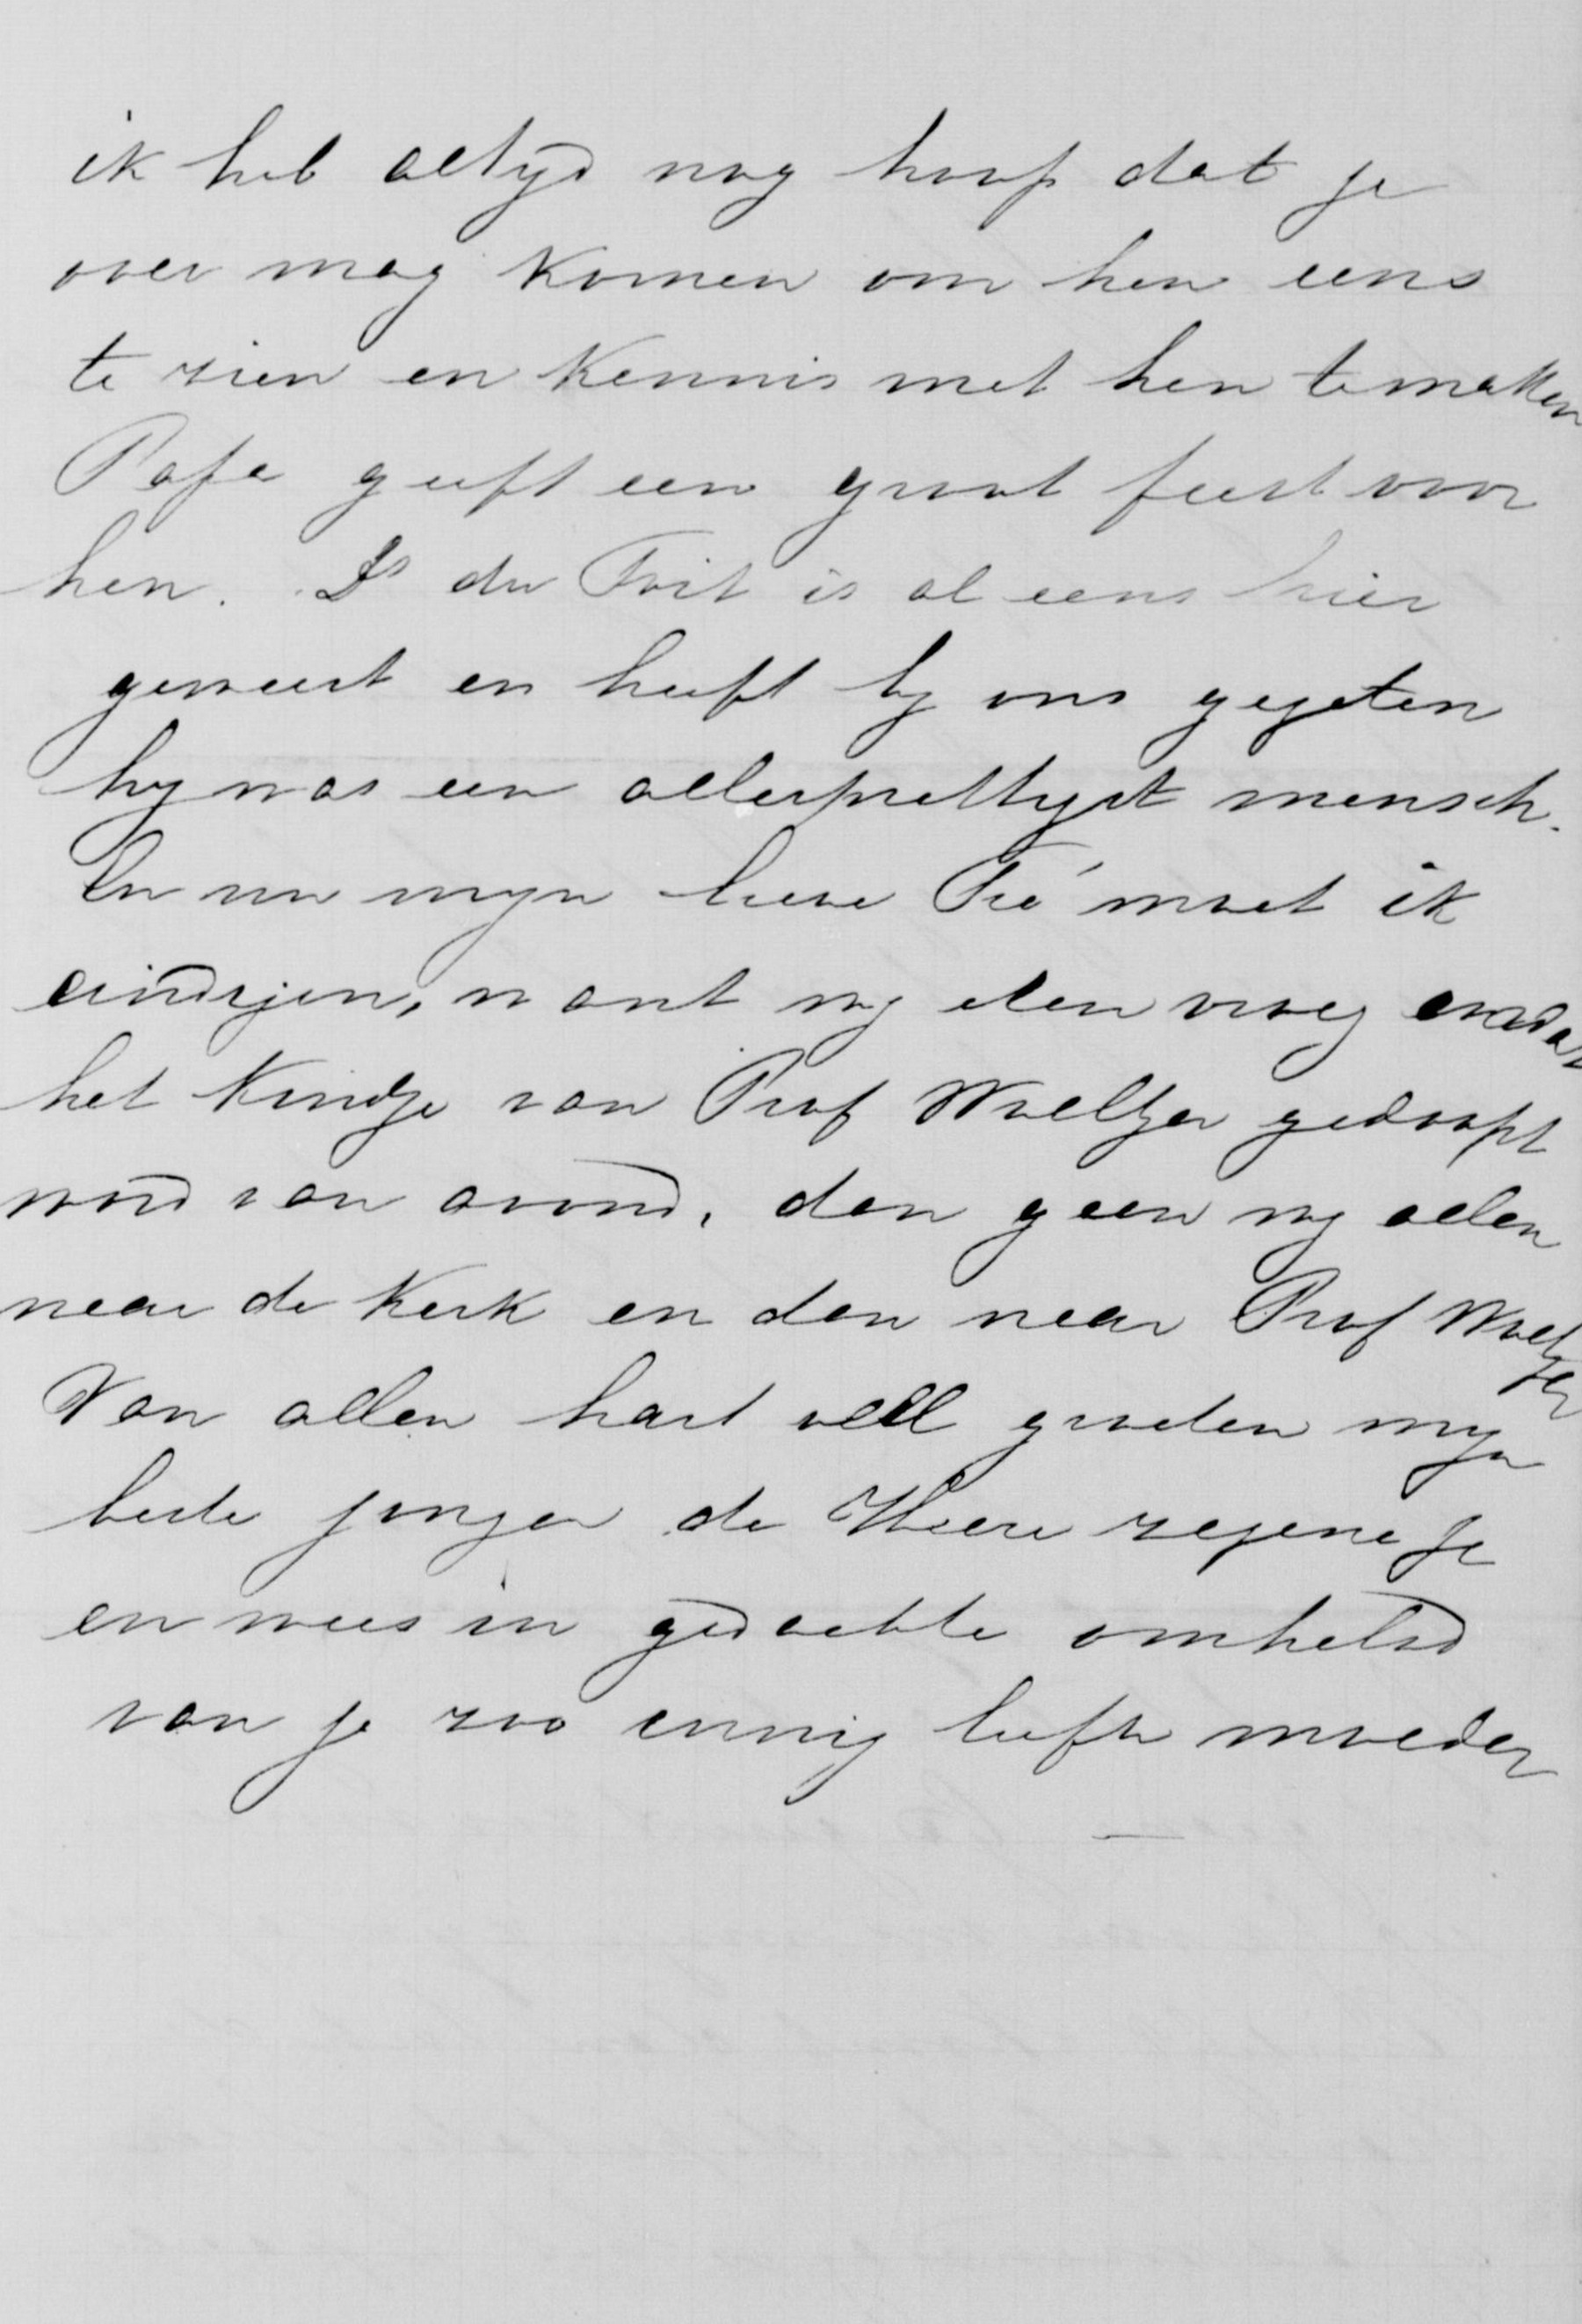 ik heb altyd nog hoop dat je
over mag komen om hen eens
te zien en kennis met hen te maken
Papa geeft een groot feest voor
hen. Ds du Toit is al eens hier
geweest en heeft by ons gegeten
hy was een allerprettigst mensch.
En nu myn lieve Fré moet ik
eindigen, want wy eten vroeg omdat
het kindje van Prof Woltjer gedoopt
word van avond, dan gaan wy allen
naar de kerk en dan naar Prof Woltjer
Van allen hart vell groeten myn
beste jongen de Heere zegene je
en wees in gedachte omhelsd
van je zoo innig liefh moeder